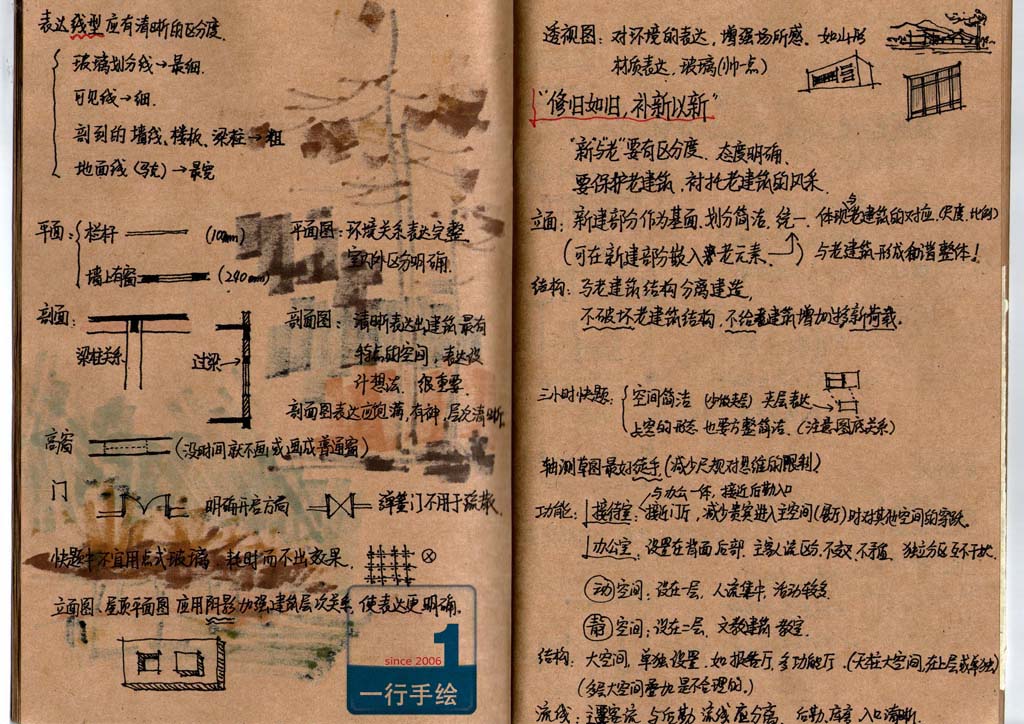 表达线型应有清晰的区分度.
玻璃划分线→最细.
可见线→细.
剖到的墙线、楼板、梁柱→粗
地面线(剖)→最宽
平面: 栏杆 (10mm)
墙上有窗 (240mm)
平面图: 环境关系表达完整
室内外区分明确.
剖面:
梁柱关系
过梁→
剖面图: 清晰表达出建筑最有
特点的空间, 表达设
计想法. 很重要.
剖面图表达应饱满, 有神, 层次清晰.
高窗 (没时间就不画或画成普通窗)
门 明确开启方向 弹簧门不用于疏散.
快题中不宜用点式玻璃, 耗时而不出效果.
立面图、屋顶平面图应用阴影加强建筑层次关系, 使表达更明确.
1
since 2006
一行手绘
透视图: 对环境的表达, 增强场所感. 如山形
材质表达. 玻璃(帅一点)
"修旧如旧, 补新以新"
"新与老"要有区分度. 态度明确.
要保护老建筑, 衬托老建筑的风采.
立面: 新建部分作为基面, 划分简洁, 统一. 体现与老建筑的对应. (尺度, 比例)
(可在新建部分嵌入老元素. 与老建筑形成和谐整体!
结构: 与老建筑结构分离建造,
不破坏老建筑结构, 不给老建筑增加新荷载.
三小时快题: 空间简洁 (少做夹层) 夹层表达→
上空的形态也要方整简洁. (注意图底关系)
轴测草图最好徒手. (减少尺规对思维的限制)
与办公一体, 接近后勤入口
功能: 接待室: 接近门厅, 减少贵宾进入主空间(展厅)时对其他空间的干扰.
办公室: 设置在背面后部. 主客人流区分, 不交叉, 独立分区互不干扰.
动空间: 设在一层, 人流集中, 活动较多
静空间: 设在二层. 文教建筑 教室.
结构: 大空间, 单独设置. 如报告厅, 多功能厅. (无柱大空间, 在上层或单独)
(多层大空间叠加是不合理的.)
流线: 主要客流与后勤流线应分离. 后勤库房入口清晰.